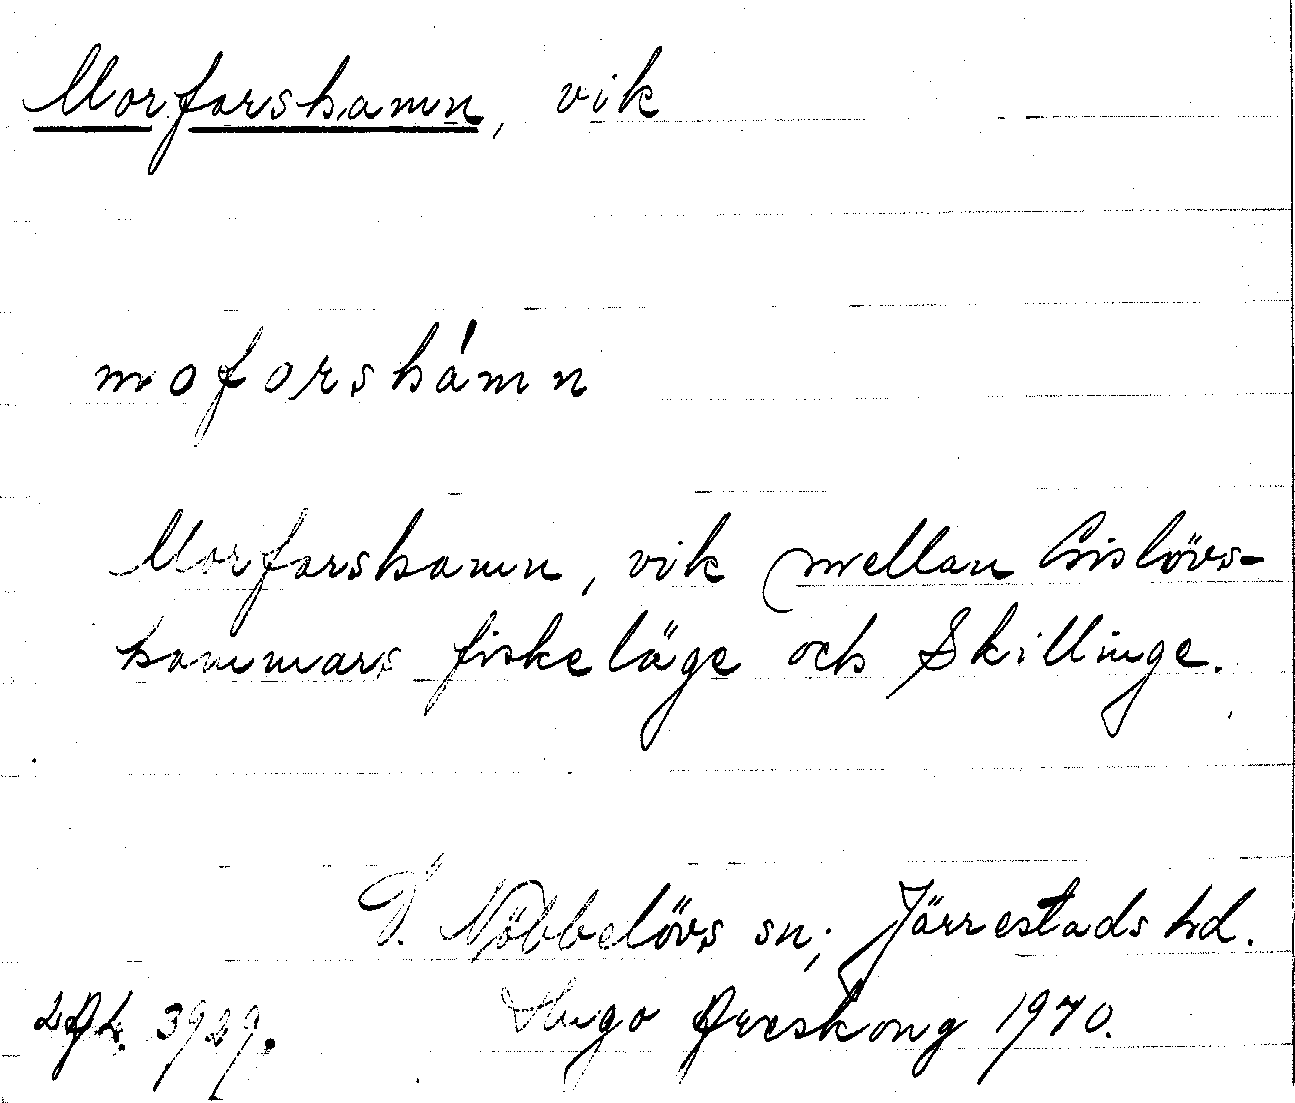 Morfarshamn, vik
moforshámn
Morfarshamn, vik mellan Gislövs-
hammars fiskeläge och Skillinge.
Ö. Nöbbelövs sn; Järrestads hd.
3929. Hugo Areskoug 1970.